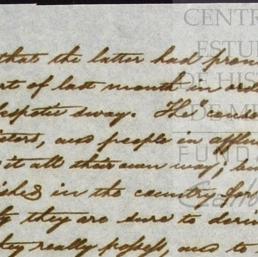 that the latter had pron
rt of last month in ord
despotic sway. The
isters, and people in
it all their own way;
in the country for
they are sure to deri
they really possess, and to
CENTR
ESTU
DE HIS
DE M
FUND